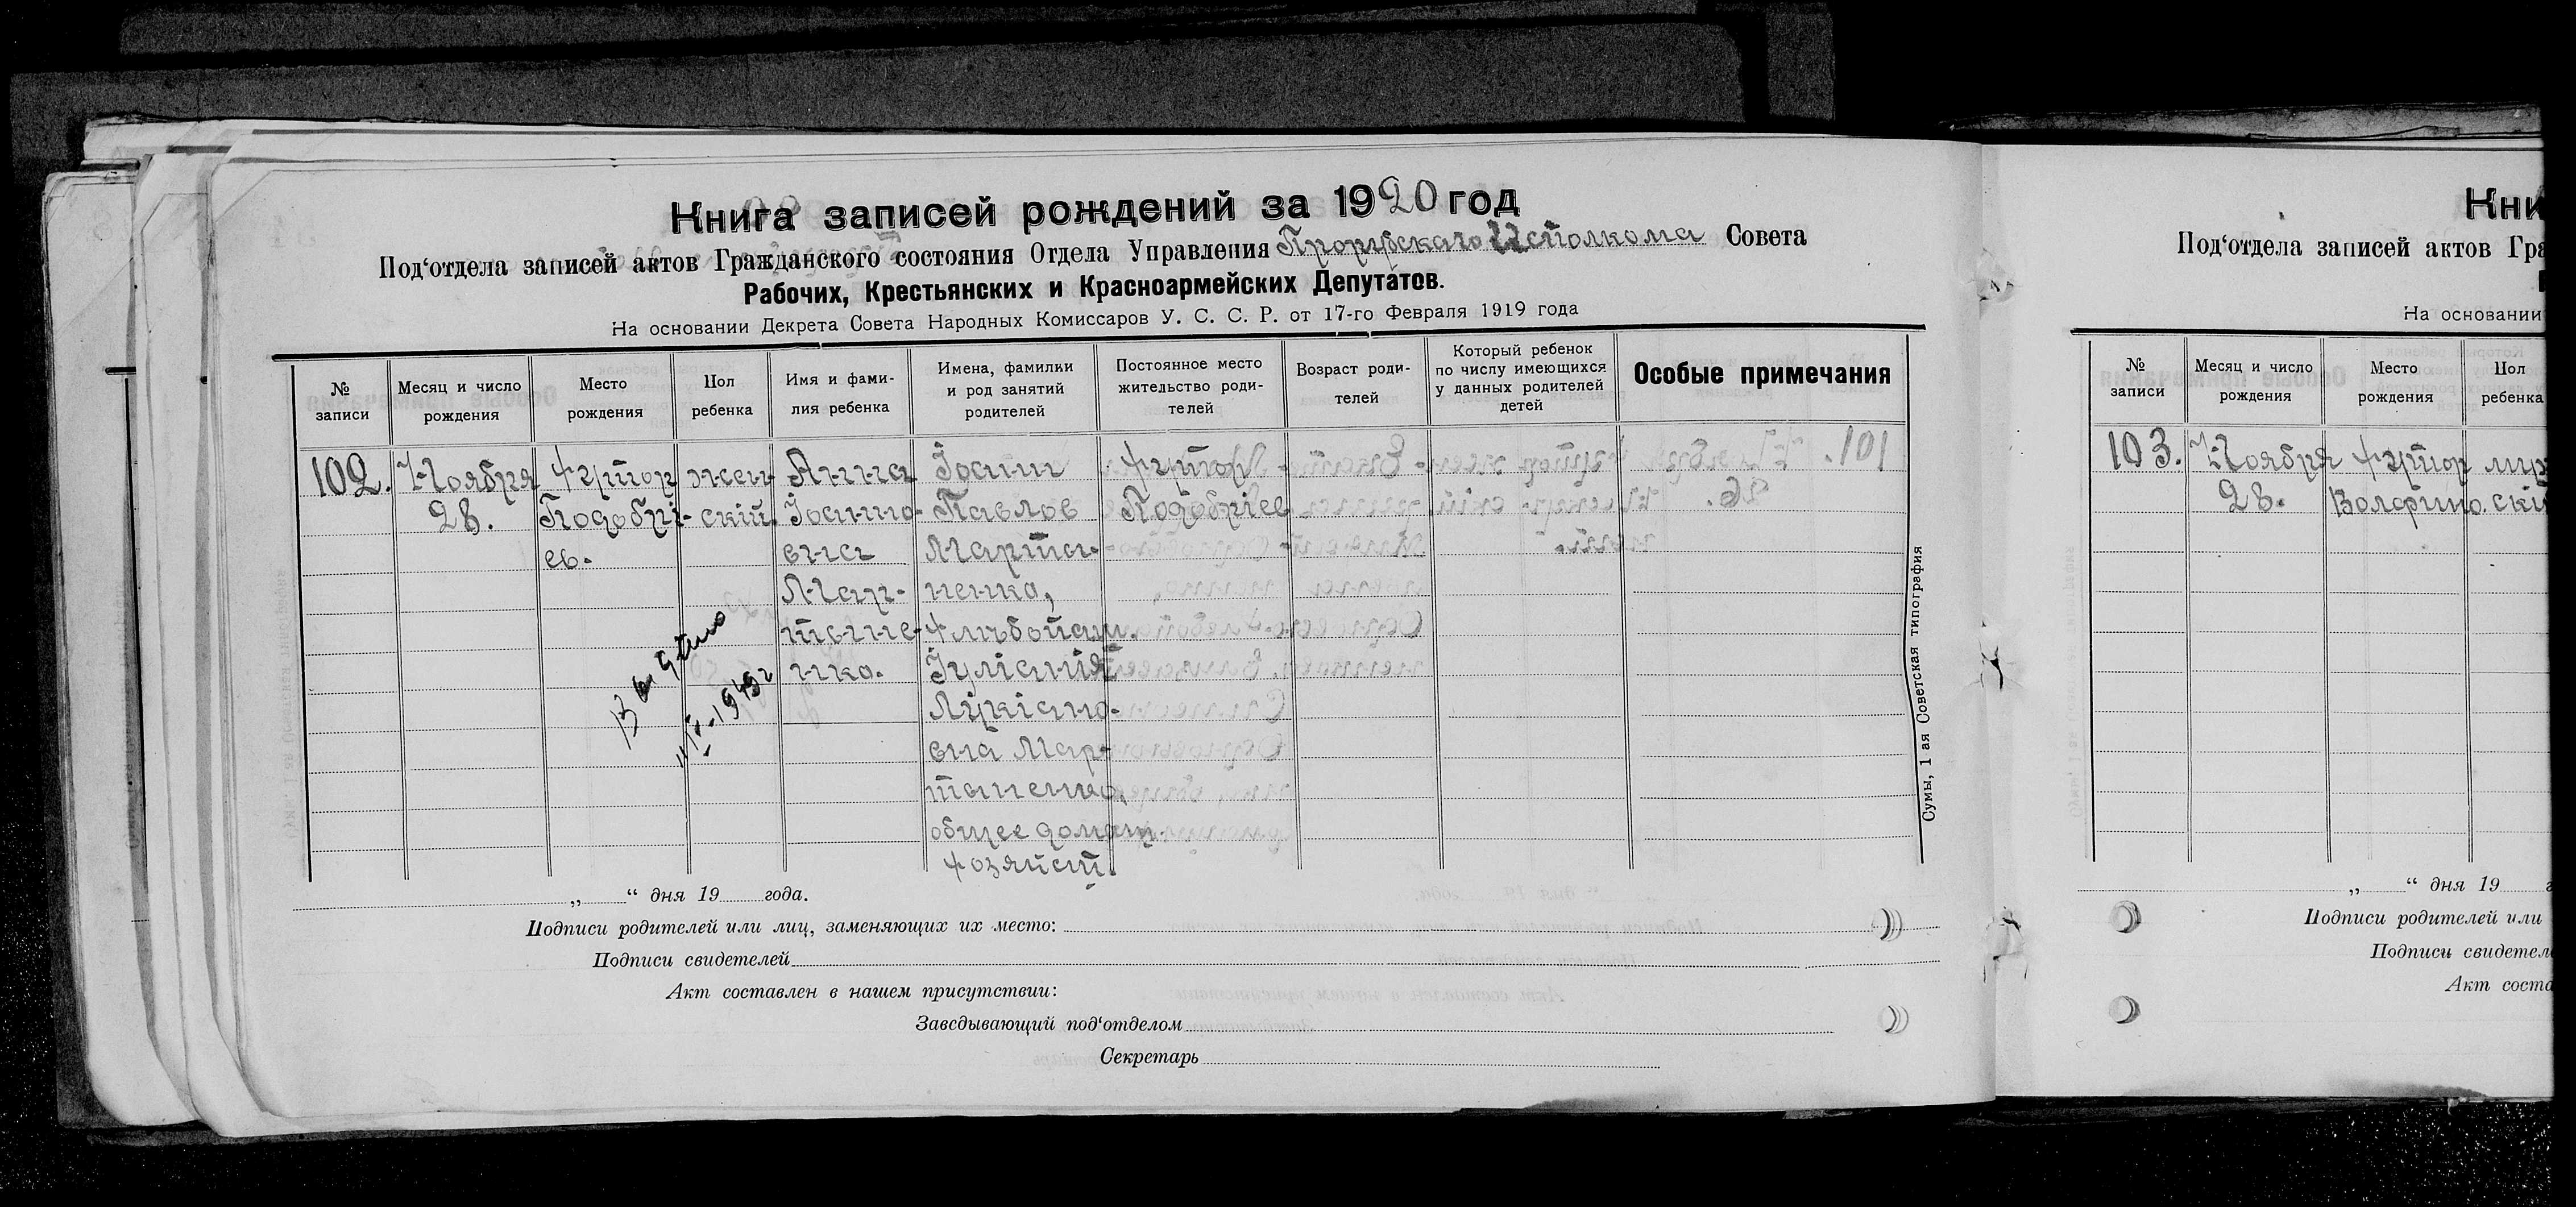 Книга записей рождений за 1920 год
Под‘отдела записей актов Гражданского состояния Отдела Управления Исполкома Совета
Рабочих, Крестьянских и Красноармейских Депутатов.
На основании Декрета Совета Народных Комиссаров У. С. С. Р. от 17-го Февраля 1919 года
№ записи
Месяц и число рождения
Место рождения
Пол ребенка
Имя и фами-
лия ребенка
Имена, фамилии
и род занятий
родителей
Постоянное место
жительство роди-
телей
Возраст роди-
телей
Который ребенок
по числу имеющихся
у данных родителей
детей
Особые примечания
102.
Ноября
28.
Хутор
Подобрі-
ев.
жен-
ский.
Анна
Іоанно-
вна
Мар-
тыне-
нко.
Іоанн
Павлов
Марта-
ненко,
Хлѣбопаш.
Іуліанія
Лукіано-
вна Мар-
таненко,
общее домаш.
хозяйст.
Хутор
Подобріев
11/V-1949г
„ “ дня 19 года.
Подписи родителей или лиц, заменяющих их место:
Подписи свидетелей
Акт составлен в нашем присутствии:
Заведывающий под‘отделом
Секретарь
Сумы, 1 ая Советская типография
Кни
Под‘отдела записей актов Гра
На основании
№ записи
Месяц и число рождения
Место рождения
Пол ребенка
103.
Ноября
28.
Хутор
муж
ски
„ “ дня 19 г
Подписи родителей или
Подписи свидетел
Акт соста